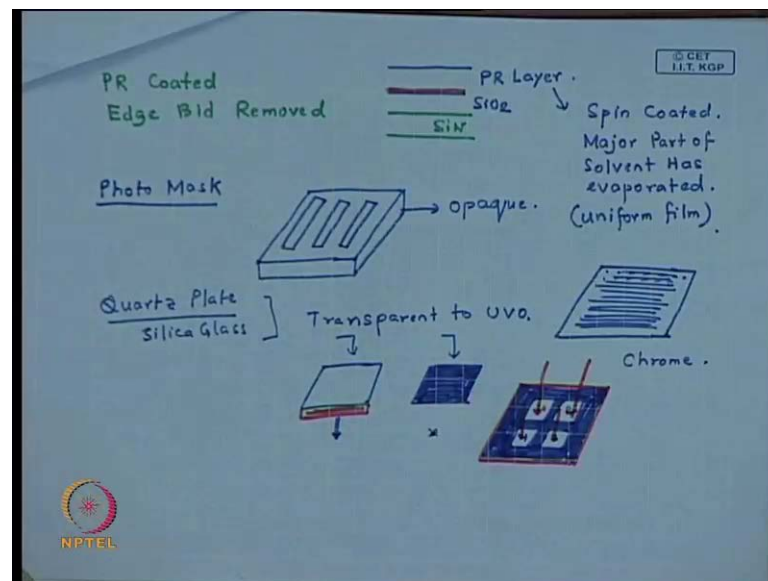 © CET
I.I.T. KGP
PR Coated
Edge Bid Removed
PR Layer.
SiO2
SiN
Spin Coated.
Major Part of
Solvent Has
evaporated.
(uniform film).
Photo Mask
opaque.
Quartz Plate
Silica Glass
Transparent to UVO.
Chrome.
NPTEL